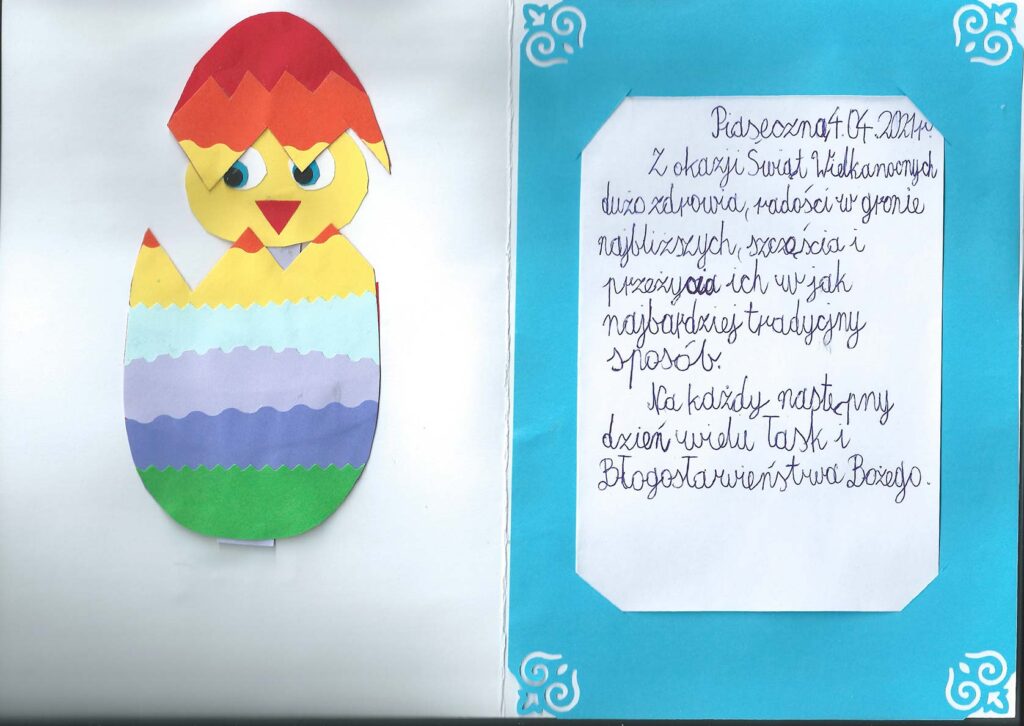 Piaseczna, 4.04.2021r.
Z okazji Świąt Wielkanocnych
dużo zdrowia, radości w gronie
najbliższych, szczęścia i
przeżycia ich w jak
najbardziej tradycyjny
sposób.
Na każdy następny
dzień wielu łask i
Błogosławieństwa Bożego.